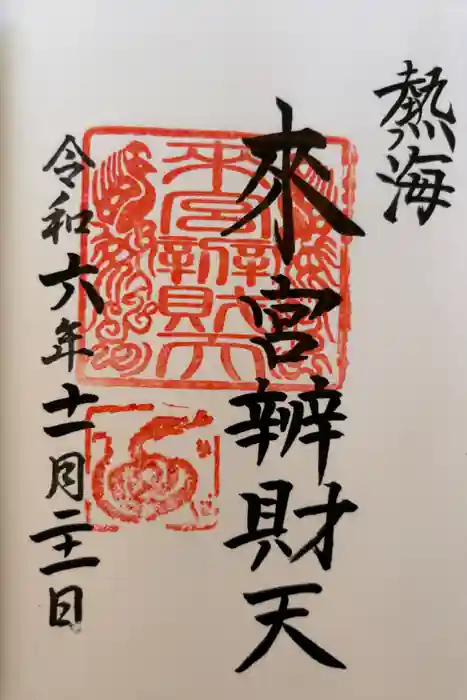 熱海
來宮辨財天
令和六年十一月二十一日
來宮辨財天